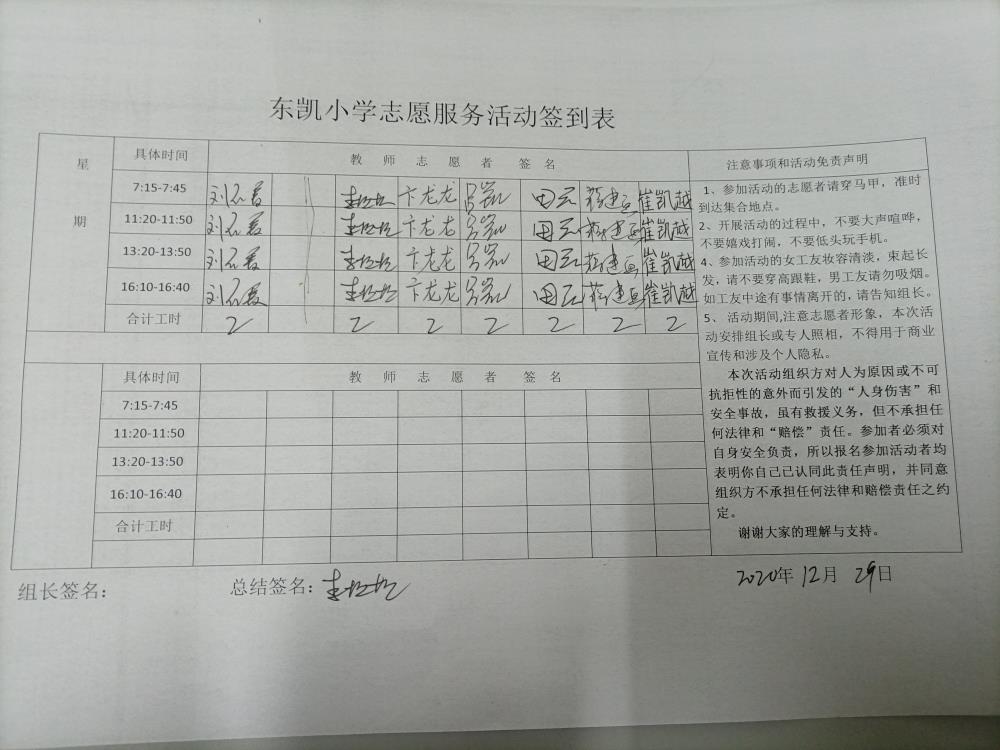 东凯小学志愿服务活动签到表
星期
具体时间 教师志愿者签名
7:15-7:45 卞龙龙 田 崔凯越
11:20-11:50 卞龙龙 田 崔凯越
13:20-13:50 卞龙龙 田 崔凯越
16:10-16:40 卞龙龙 田 崔凯越
合计工时 2 2 2 2 2 2 2
具体时间 教师志愿者签名
7:15-7:45
11:20-11:50
13:20-13:50
16:10-16:40
合计工时
注意事项和活动免责声明
1、参加活动的志愿者请穿马甲，准时
到达集合地点。
2、开展活动的过程中，不要大声喧哗，
不要嬉戏打闹，不要低头玩手机。
4、参加活动的女工友妆容清淡，束起长
发，请不要穿高跟鞋，男工友请勿吸烟。
如工友中途有事情离开的，请告知组长。
5、活动期间,注意志愿者形象，本次活
动安排组长或专人照相，不得用于商业
宣传和涉及个人隐私。
本次活动组织方对人为原因或不可
抗拒性的意外而引发的“人身伤害”和
安全事故，虽有救援义务，但不承担任
何法律和“赔偿”责任。参加者必须对
自身安全负责，所以报名参加活动者均
表明你自己已认同此责任声明，并同意
组织方不承担任何法律和赔偿责任之约
定。
谢谢大家的理解与支持。
组长签名： 总结签名：
2020年 12月 29日